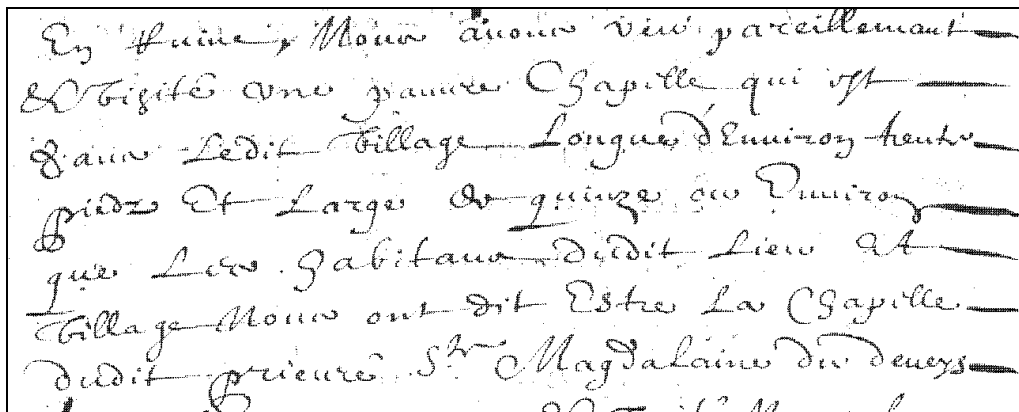 En Ruine, Nous auons veu pareillemant
& Visité vne pauure Chapelle qui est
dans Ledit Village Longue d'Enuiron trente
piedz Et Large de quinze ou Enuiron
que Les habitans dudit Lieu et
Village Nous ont dit Estre La Chapelle
dudit prieuré Ste Magdalaine du deueys